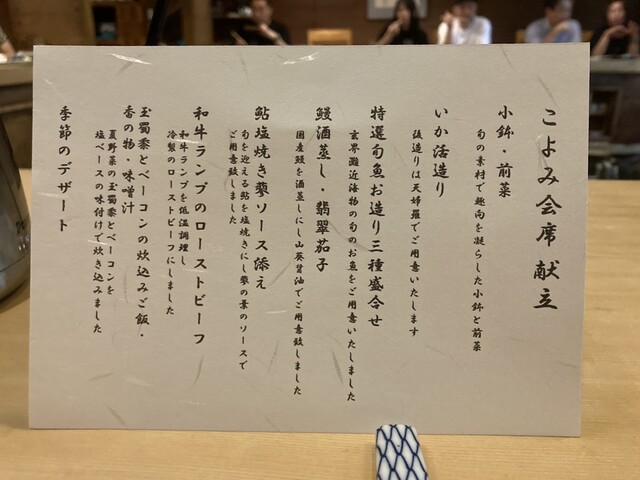 こよみ会席 献立
小鉢・前菜
旬の素材で趣向を凝らした小鉢と前菜
いか活造り
後造りは天婦羅でご用意いたします
特選旬魚お造り三種盛合せ
玄界灘近海物の旬のお魚をご用意いたしました
鰻酒蒸し・翡翠茄子
国産鰻を酒蒸しにし山葵醤油でご用意致しました
鮎塩焼き蓼ソース添え
旬を迎える鮎を塩焼きにし蓼の葉のソースで
ご用意致しました
和牛ランプのローストビーフ
和牛ランプを低温調理し
冷製のローストビーフにしました
玉蜀黍とベーコンの炊込みご飯・
香の物・味噌汁
夏野菜の玉蜀黍とベーコンを
塩ベースの味付けで炊き込みました
季節のデザート